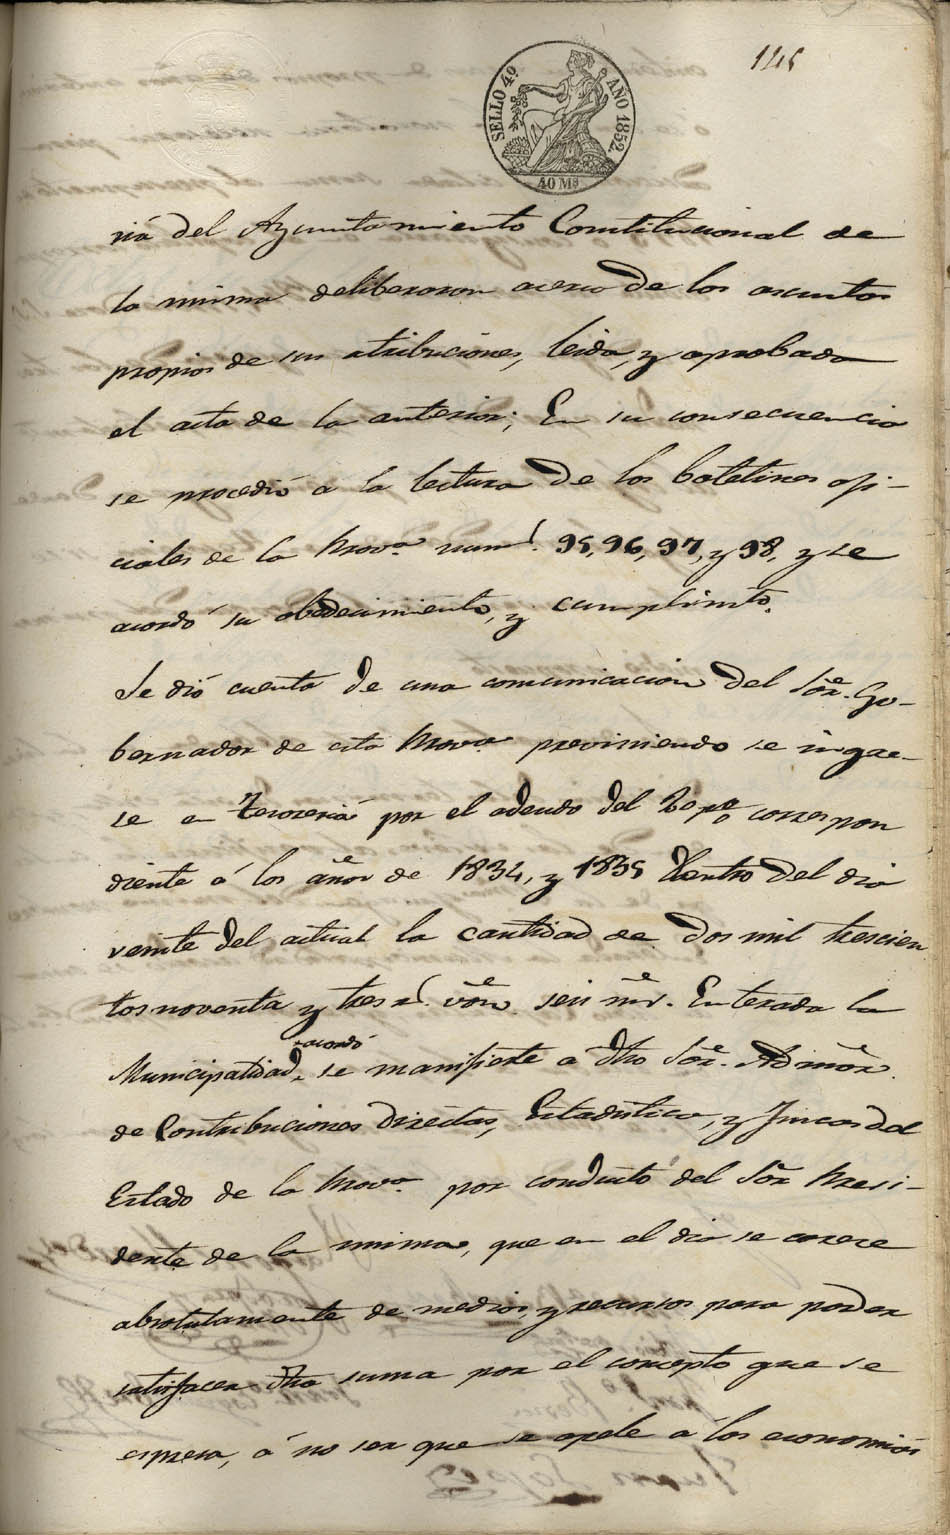 145
SELLO 4º AÑO 1852.
40 Ms
ria del Ayuntamiento Constitucional de
la misma deliberaron acerca de los asuntos
propios de sus atribuciones, leida, y aprobada
el acta de la anterior; En su consecuencia
se procedió a la lectura de los boletines ofi-
ciales de la Prova. nums. 95, 96, 97, y 98, y se
acordó su obedecimiento, y cumplimto.
Se dió cuenta de una comunicacion del Sor. Go-
bernador de esta Prova. previniendo se ingre-
se en Tesoreria por el adeudo del correspon
diente á los años de 1834, y 1835 dentro del dia
veinte del actual la cantidad de dos mil trescien
tos noventa y tres rs. von. seis mrs. Enterada la
Municipalidad, acordó se manifieste a dho Sor. Admor.
de Contribuciones directas, Estadistica, y Fincas del
Estado de la Prova. por conducto del Sor Presi-
dente de la misma, que en el dia se carece
absolutamente de medios, y recursos para poder
satisfacer dha suma por el concepto que se
espresa, á no ser que se apele á las economias